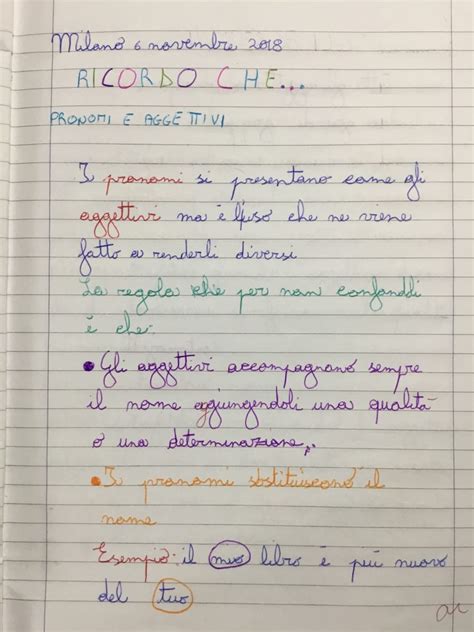 Milano 6 novembre 2018
RICORDO CHE...
PRONOMI E AGGETTIVI
I pronomi si presentano come gli
aggettivi ma è l'uso che ne viene
fatto a renderli diversi
La regola che per non confonddi
è che:
• Gli aggettivi accompagnano sempre
il nome aggiungendoli una qualità
o una determinazione,
• I pronomi sostituiscono il
nome
Esempio: il mio libro è più nuovo
del tuo